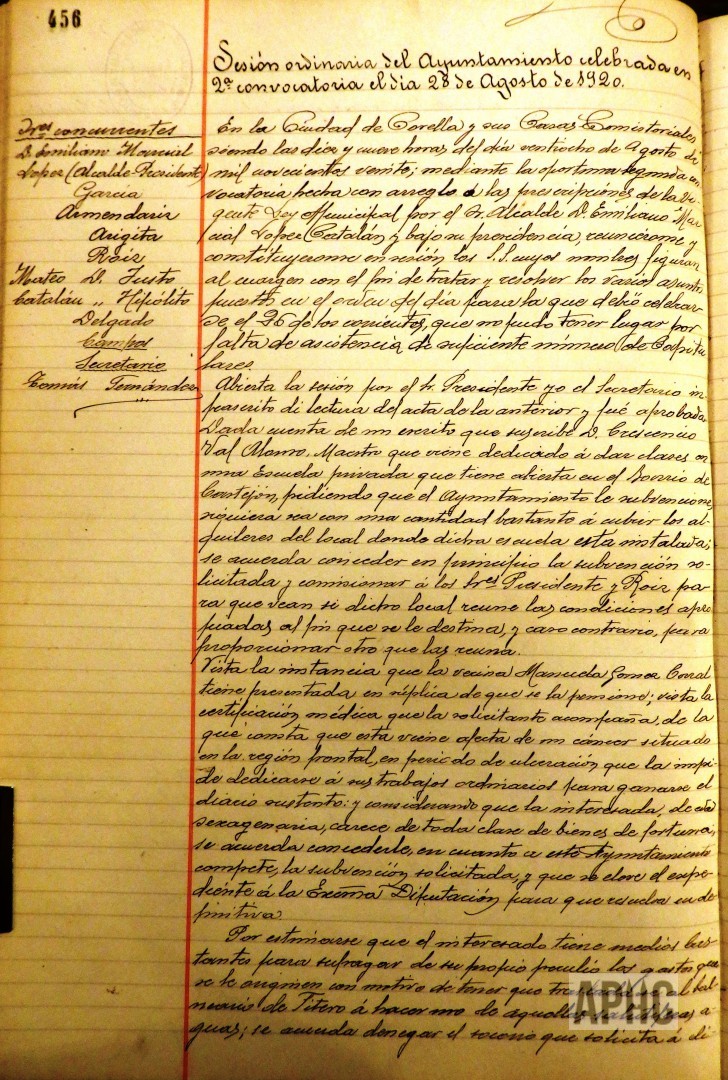 456
Sesión ordinaria del Ayuntamiento celebrada en
2ª convocatoria el dia 28 de Agosto de 1920.
Sres concurrentes
D. Emiliano Marcial
Lopez (Alcalde-Presidente)
Garcia
Armendariz
Arigita
Roiz
Mateo D. Justo
Catalán „ Hipólito
Delgado
Campos
Secretario
Tomás Fernández
En la Ciudad de Corella y sus Casas Comistoriales
siendo las diez y nueve horas del día veintiocho de Agosto de
mil novecientos veinte; mediante la oportuna segunda con
vocatoria hecha con arreglo a las prescripciones de la vi-
gente Ley Municipal por el Sr. Alcalde D. Emiliano Mar
cial Lopez Catalán y bajo su presidencia, reunierome y
constituyerome en sesión los S.S. cuyos nombres figuran
al margen con el fin de tratar y resolver los varios asuntos
puestos en el orden del día para la que debió celebrar
se el 26 de los corrientes, que no pudo tener lugar por
falta de asistencia de suficiente número de Capitu
lares.
Abierta la sesión por el Sr. Presidente yo el Secretario in
frascrito di lectura del acta de la anterior y fué aprobada.
Dada cuenta de un escrito que suscribe D. Crescencio
Val Alonso, Maestro que viene dedicado á dar clases en
una Escuela privada que tiene abierta en el Barrio de
Castejón, pidiendo que el Ayuntamiento le subvencione
siquiera sea con una cantidad bastante á cubrir los al-
quileres del local donde dicha escuela está instalada;
se acuerda conceder en principio la subvención so-
licitada y comisionar á los Sres Presidente y Roiz pa-
ra que vean si dicho local reune las condiciones apro
piadas al fin que se le destina, y caso contrario, para
proporcionar otro que las reuna.
Vista la instancia que la vecina Manuela Gomez Corral
tiene presentada en súplica de que se la pensione; vista la
certificación médica que la solicitante acompaña, de la
que consta que esta viene afecta de un cáncer situado
en la región frontal, en periodo de ulceración que la impi-
de dedicarse á sus trabajos ordinarios para ganarse el
diario sustento: y considerando que la interesada, de edad
sexagenaria, carece de toda clase de bienes de fortuna,
se acuerda concederle, en cuanto a este Ayuntamiento
compete, la subvención solicitada, y que se eleve el expe-
diente á la Excma Diputación para que resuelva en de
finitiva.
Por estimarse que el interesado tiene medios bas
tantes para sufragar de su propio peculio los gastos que
se le originen con motivo de tener que trasladarse al bal-
neario de Fitero á hacer uso de aquellas a-
guas; se acuerda denegar el socorro que solicita á di-
APHC